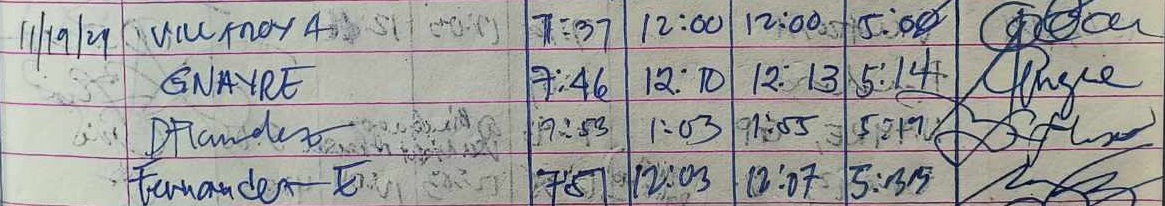 11/19/24 VILLANOY A 7:37 12:00 12:00 5:00
GNAYRE 7:46 12:10 12:13 5:14
7:53 1:03 1:55 5:17
Fernandez E 7:57 12:03 12:07 5:35